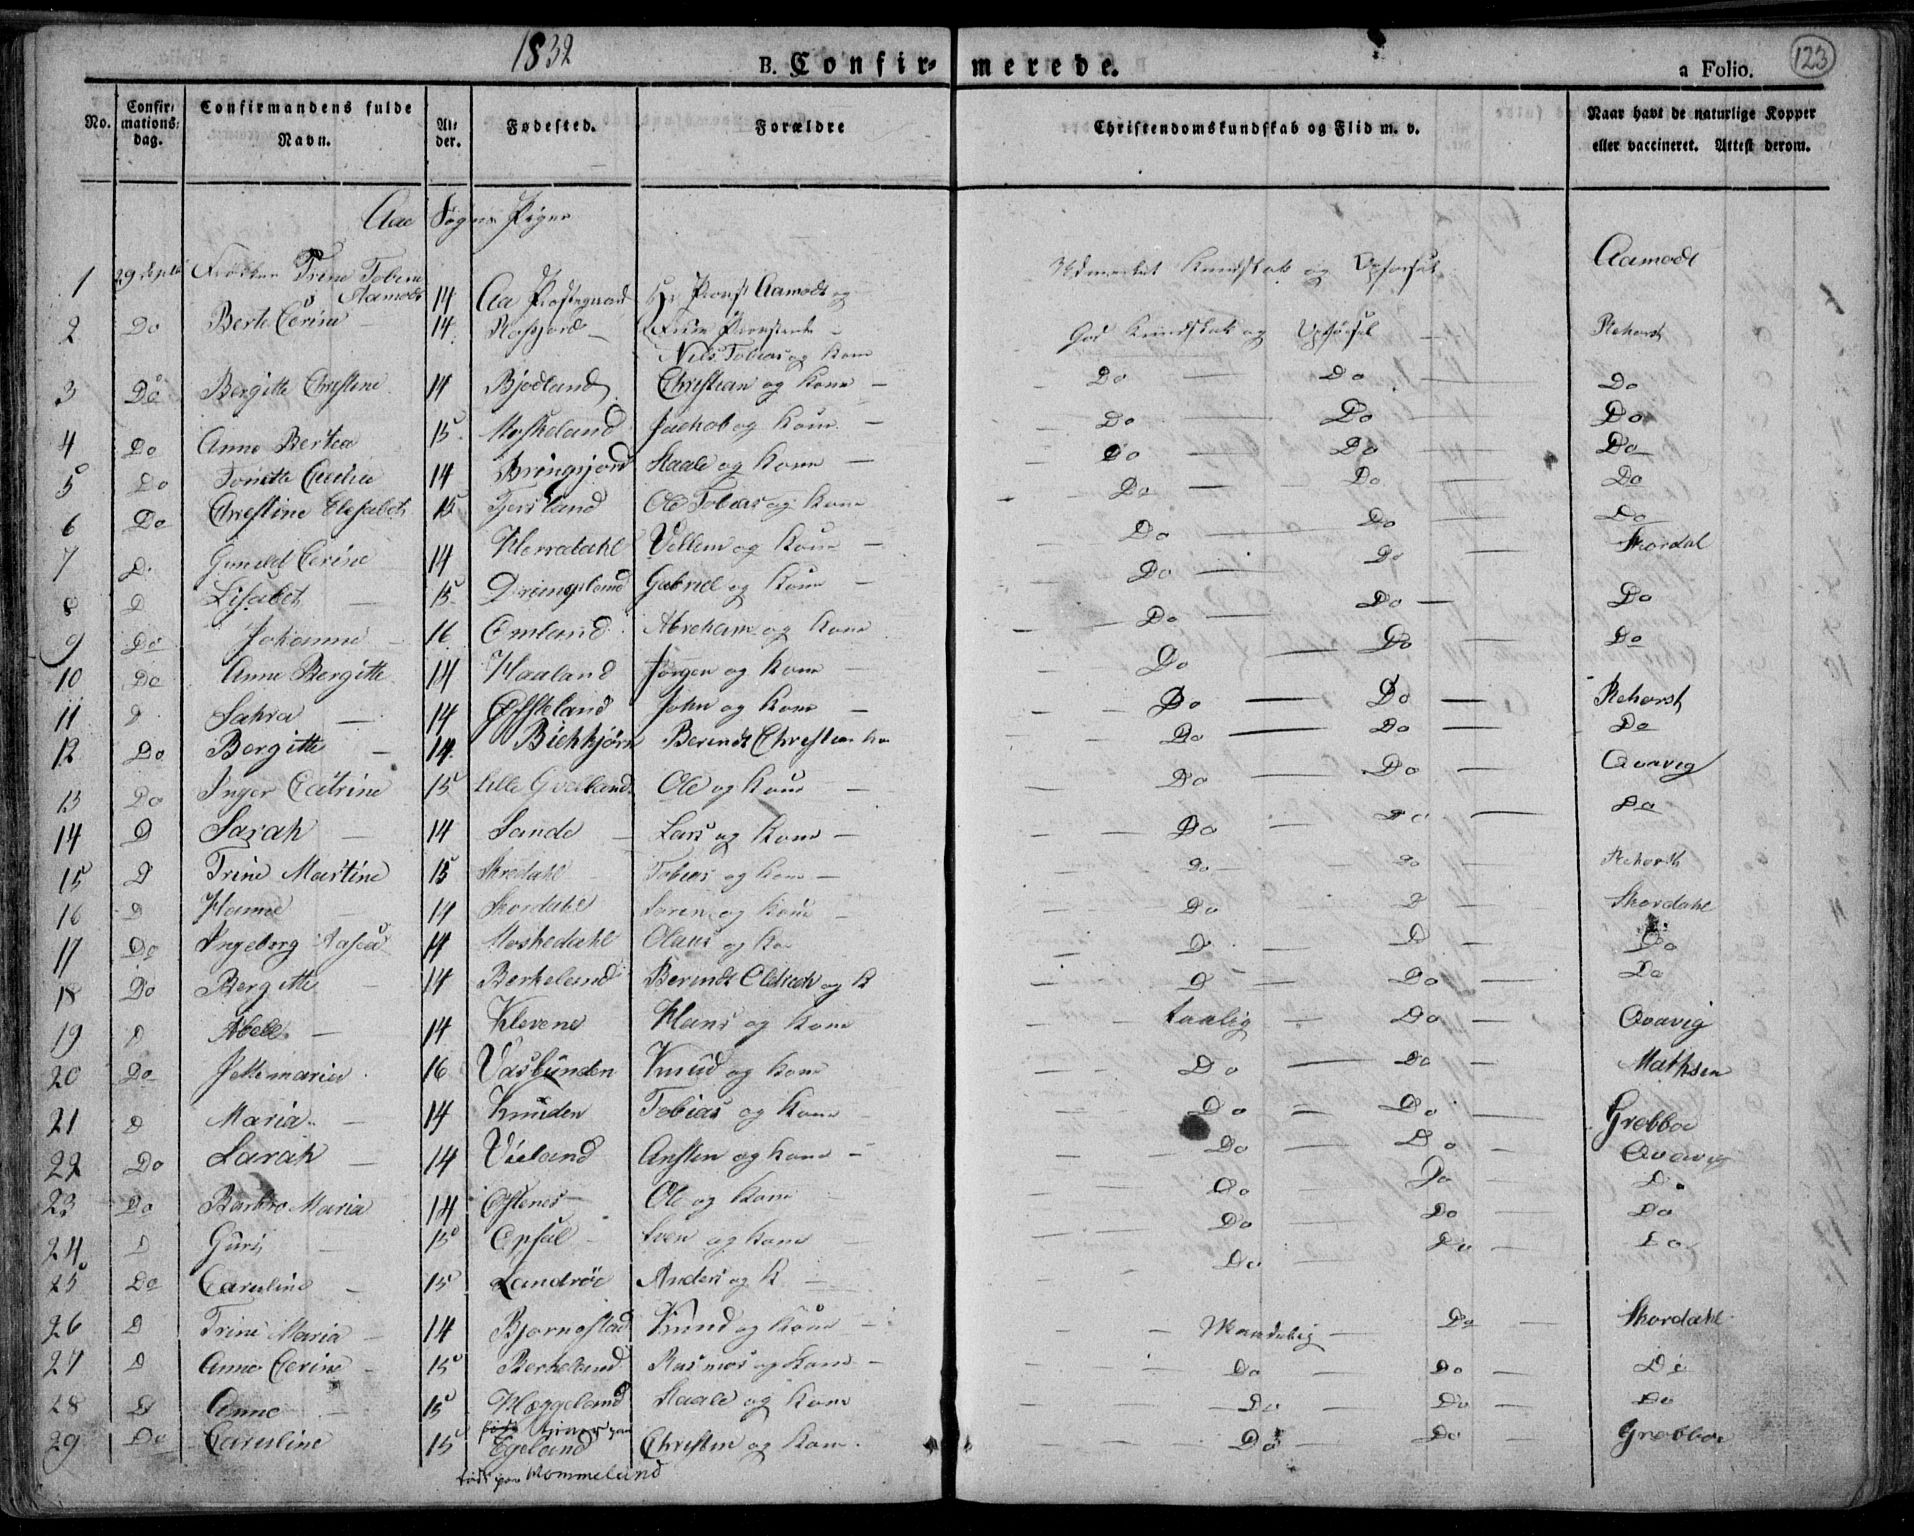 1832
B. Confir- merede.
a Folio.
123
No. Confirmations-dag. Confirmandens fulde Navn. Alder. Fødested. Forældre Christendomskundskab og Flid m. v. Naar havt de naturlige Kopper eller vaccineret. Attest derom.
Aae Sogns Piger
1 29 Septb Frøken Trine Tobine Aamodt 14 Aa Præstegaard Hr Provst Aamodt og Udmerket Kundskab og Opførsel Aamodt
2 Do Berte Cerine 14 Rosfjord Niels Tobias og Kone God Kundskab og Opførsel Rehorst
3 Do Bergitte Christine 14 Bjodland Christian og Kone Do Do Do
4 Do Anne Bertea 15 Moskeland Jachob og Kone Do Do Do
5 Do Tonette 14 Bringsjord Staale og Kone Do Do Do
6 Do Christine Elisabet 15 Jersland Ole Tobias og Kone Do Do Do
7 D Gunild Cerine 14 Herradahl Villem og Kone Do Do Do
8 D Lisabet 15 Drangsland Gabriel og Kone Do Do Skordal
9 Do Johanne 16 Omland Abraham og Kone Do Do Do
10 Do Anne Bergitte 14 Haaland Jørgen og Kone Do Do Do
11 D Sahra 14 John og Kone Do Do Rehorst
12 Do Bergitte 14 Birkkjørn Berendt Christian Ko Do Do Do
13 Do Inger Catrine 15 Lille Ole og Kone Do Do Qvavig
14 D Sarah 14 Sande Lars og Kone Do Do Do
15 D Trine Martine 15 Skredahl Tobias og Kone Do Do Rehorst
16 D Hanne 14 Skordahl Søren og Kone Do D Skordahl
17 Do Ingeborg 14 Moskedahl Olaus og Ko D D Do
18 Do Bergitte 14 Berkeland Berendt og K D Do Do
19 D Abele 14 Klevene Hans og Kone taalig Do Qvavig
20 Do Jettemaria 16 Vaslunden Knud og Kone Do Do Mathsen
21 D Maria 14 Knuden Tobias og Kone Do Do Grebboe
22 Do Sarah 14 Vieland Ansten og Kone Do Do Qvavig
23 Do Barbro Maria 14 Østenes Ole og Kone Do Do Do
24 D Guri 15 Opsal Sven og Kone Do Do Do
25 Do Caruline 15 Landrøe Anders og K Do Do Do
26 D Trine Maria 14 Bjørnestad Knud og Kone Maadelig Do Skordahl
27 D Anne Cerine 15 Berkeland Rasmos og Kone Do Do Do
28 D Anne 15 Hæggeland Staale og Kone Do Do Do
29 Do Caruline 15 Egeland Christen og Kone Do Do Grebboe
født paa Rommeland